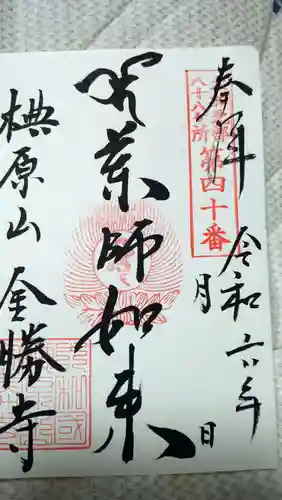 奉拝 令和六年 月 日
八十八ヶ所 第四十番
薬師如来
椣原山 金勝寺